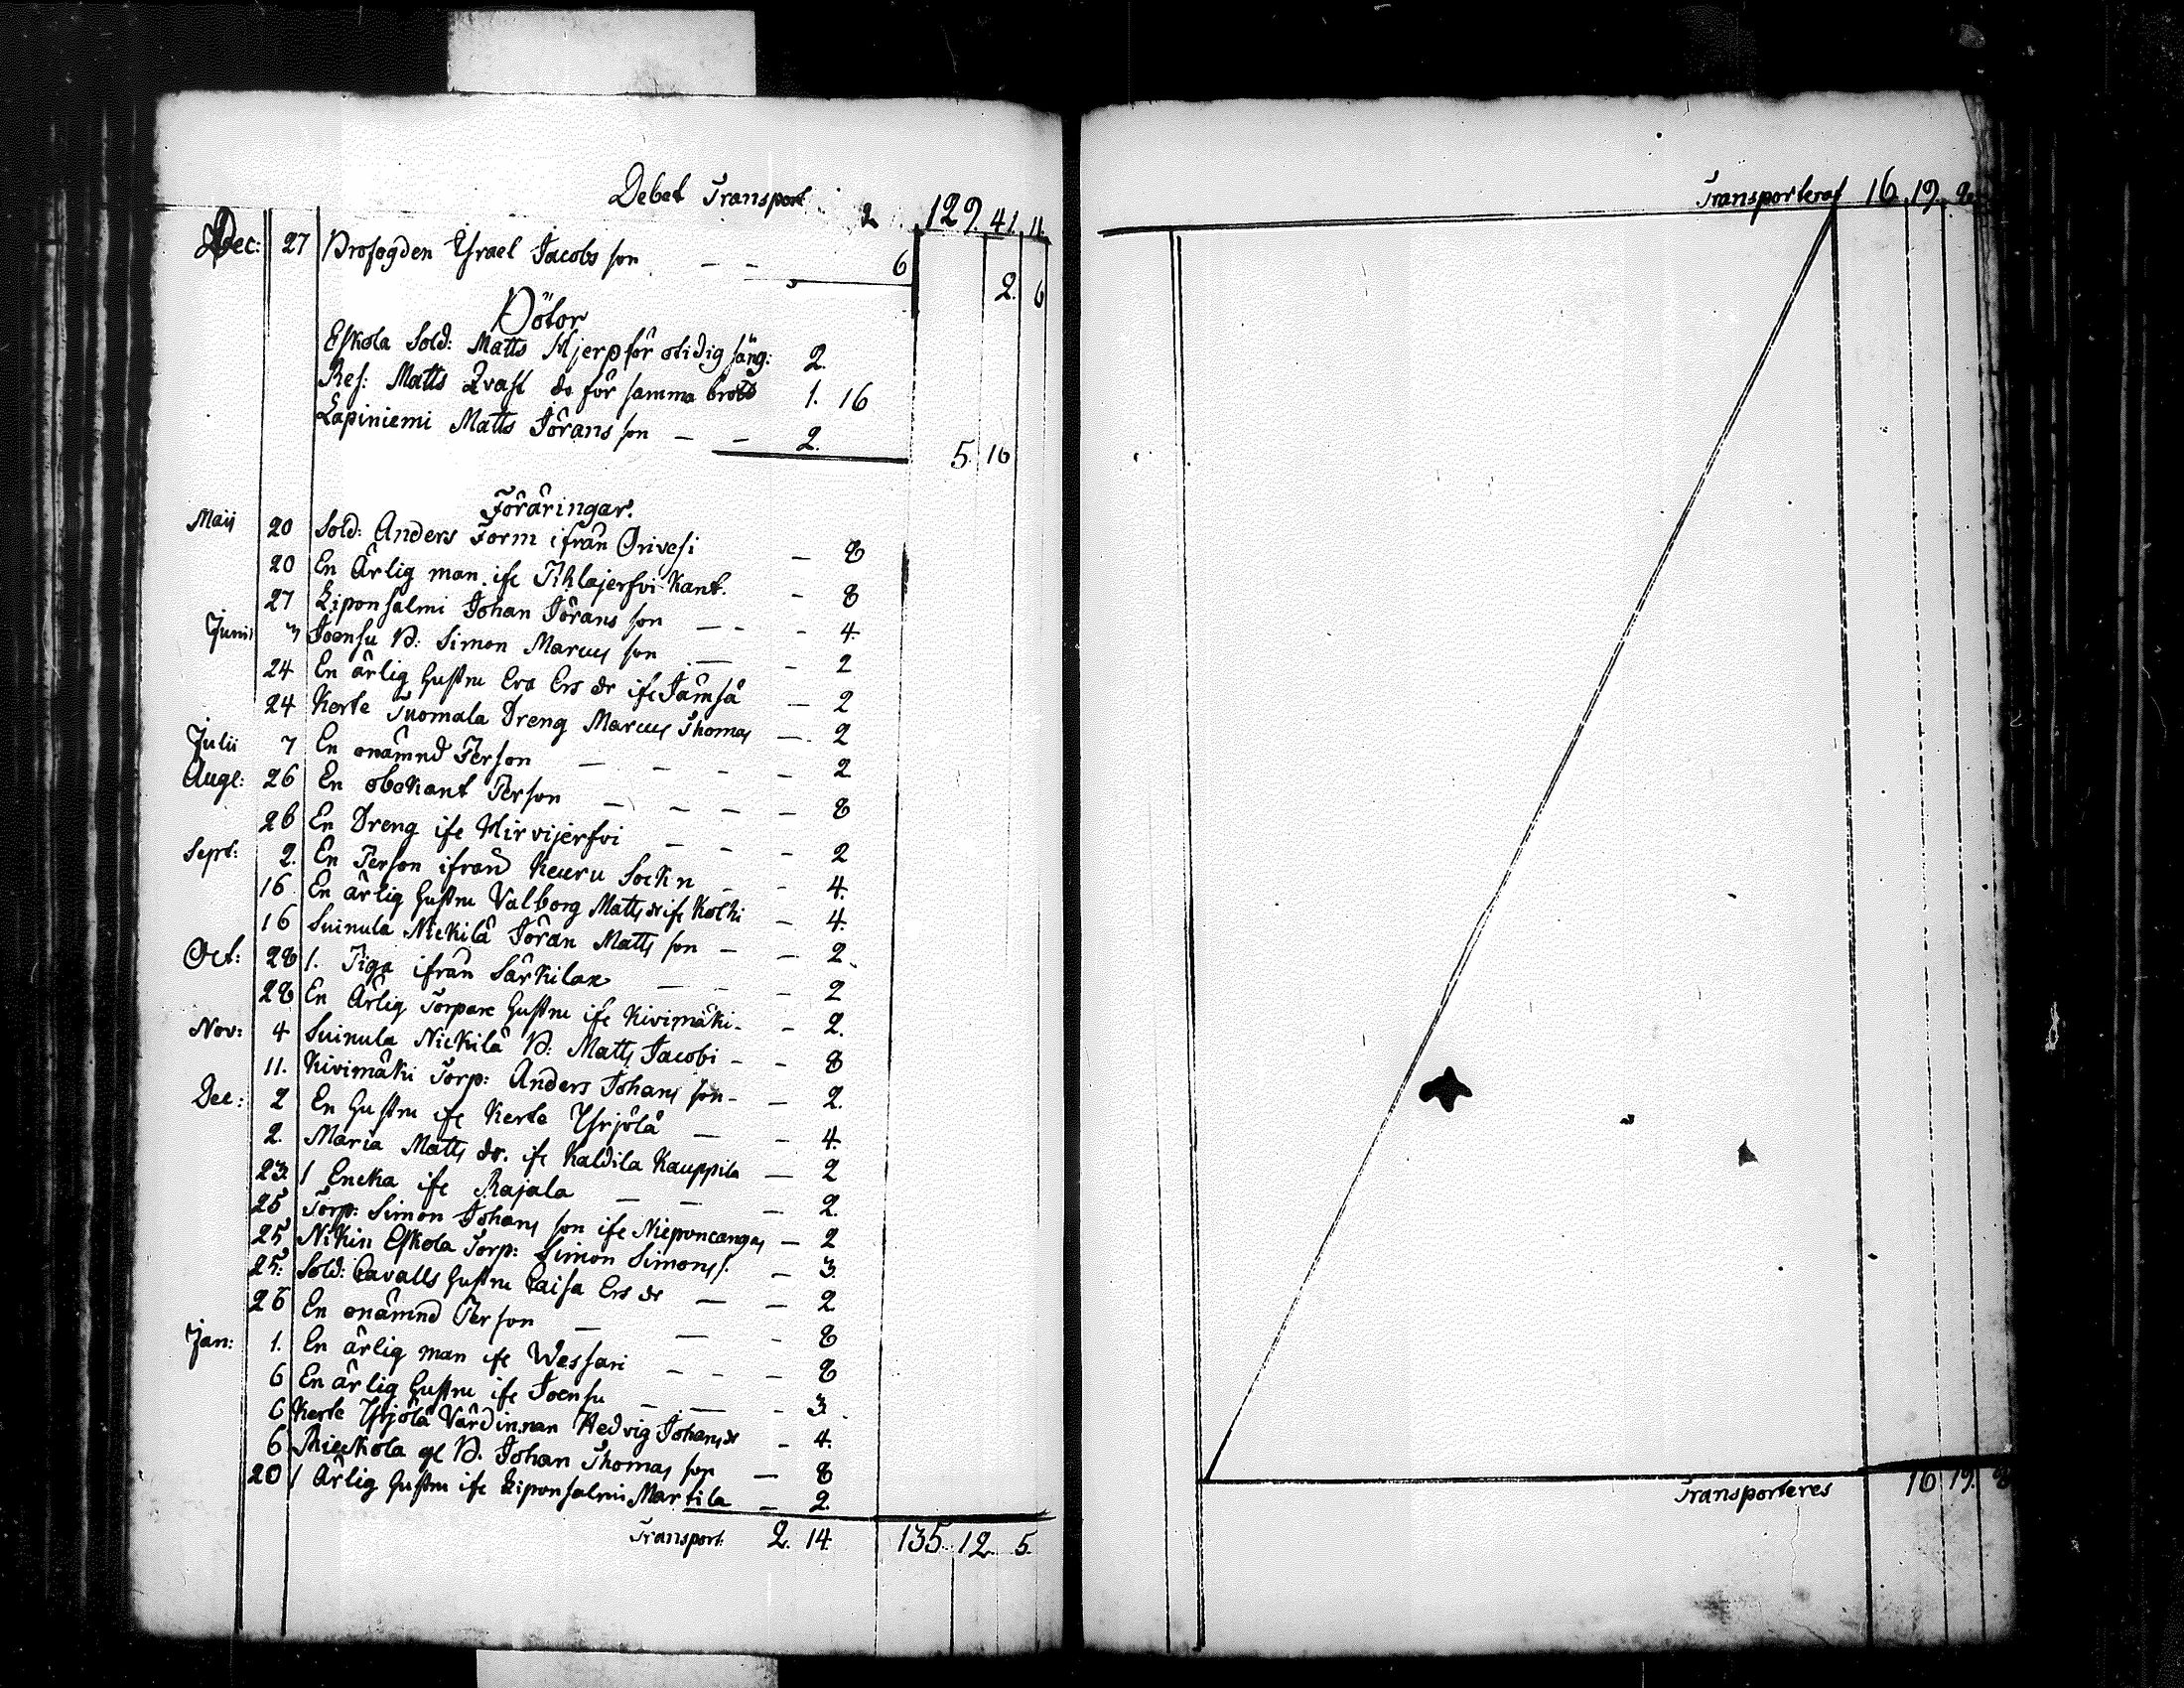 Debet Transport 2 129. 41. 11.
Dec: 27 Profogden Ysrael Jacobs son — — 6
2. 6
Böter
Eskola Sold: Matts Hjerp för otidig säng: 2.
Res: Matts Qvast do för samma brott 1. 16
Lapiniemi Matts Jörans son — — 2.
5. 16
Föräringar.
Maij 20 Sold: Anders Form ifrån Orivesi — 8
20 En Ärlig man ifr Pihlajerfvi Kant. — 8
27 Liponsalmi Johan Jörans son — — — 4.
Junii 3 Joensu B: Simon Marcus son — — 2
24 En ärlig hustru Eva Ers dr ifr Jämsä — 2
24 Kerte Tuomala Dreng Marcus Thomas — 2
Julii 7 En onämnd Person — — — — 2
Aug: 26 En obekant Person — — — — 8
26 En Dreng ifr Hirvijerfvi — — — 2
Sept: 2. En Person ifrånd Keuru Sockn — — 4.
16. En ärlig hustru Valborg Matts dr ifr Kolhi — 4.
16 Suinula Nickilä Jöran Matts son — — 2.
Oct: 28 1. Piga ifrån Särkilax — — — 2
28 En Ärlig Torpare hustru ifr Kivimäki — — 2.
Nov: 4 Suinula Nickilä B: Matts Jacobi — — 8
11. Kivimäki Torp: Anders Johans son — — 2.
Dec: 2 En hustru ifr Kerte Yrjölä — — 4.
2. Maria Matts dr. ifr Kaldila Kauppila — 2
23. 1 Encka ifr Rajala — — — 2.
25 Torp: Simon Johans son ifr Nieponcangas — 2
25 Nikin Eskola Torp: Simon Simons s. — 3.
25: Sold: Cavalls hustru Caisa Ers dr — — 2
26 En onämnd Person — — — 8
Jan: 1. En ärlig man ifr Wessari — — — 8
6 En ärlig hustru ifr Joensu — — — 3.
6 Kerte Yrjölä Värdinnan Hedvig Johans dr — 4.
6 Rieckola gl B. Johan Thomas son — 8
20 1 Ärlig hustru ifr Liponsalmi Martila — 2.
Transport 2. 14 135. 12. 5.
Transporterat 16. 19. 2
Transporteres 16 19.